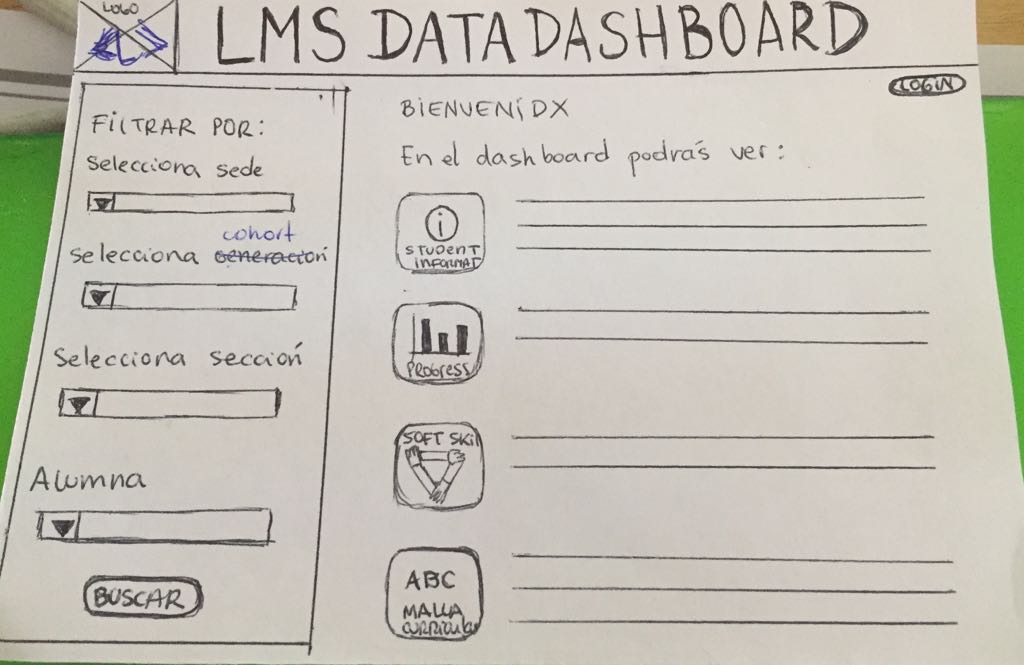 LOGO
LMS DATA DASHBOARD
LOGIN
FILTRAR POR:
Selecciona sede
cohort
Selecciona generación
Selecciona sección
Alumna
BUSCAR
BIENVENIDX
En el dashboard podrás ver:
i
STUDENT
INFORMAT
PROGRESS
SOFT SKIL
ABC
MALLA
CURRICULAR